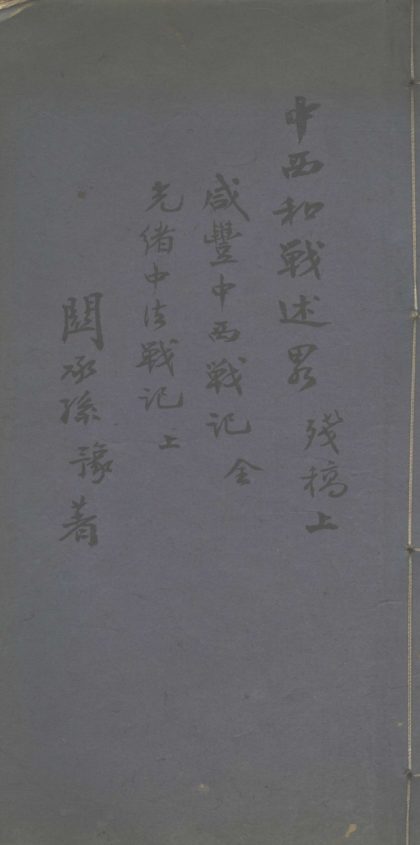 中西和戰述畧 殘稿上
咸豐中西戰记 全
光緒中法戰记 上
關承孫豫著